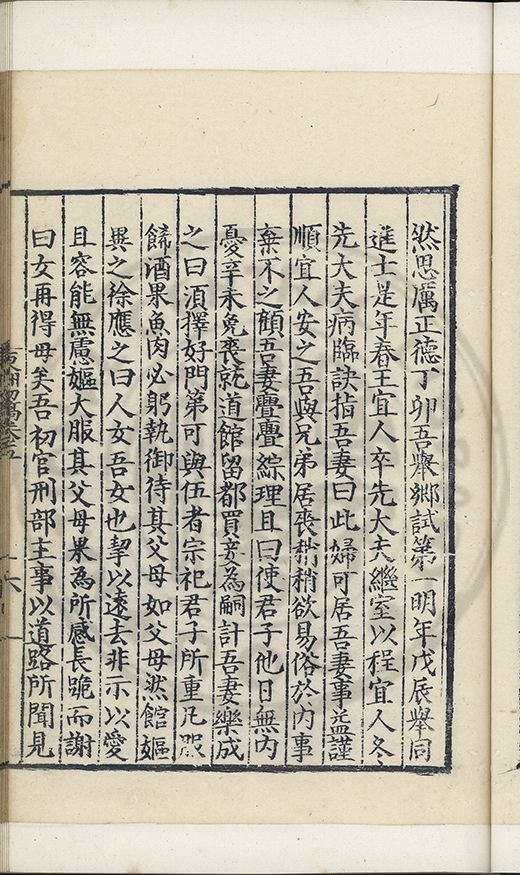 然思厲正德丁卯吾舉鄉試第一明年戊辰舉同
進士是年春王宜人卒先大夫繼室以程宜人冬
先大夫病臨訣指吾妻曰此婦可居吾妻事益謹
順宜人安之吾與兄弟居喪稍稍欲易俗於內事
棄不之顧吾妻亹亹綜理且曰使君子他日無內
憂辛未免喪就道館留都買妾為嗣計吾妻樂成
之曰須擇好門第可與伍者宗祀君子所重凡服
飾酒果魚肉必躬執御待其父母如父母然館嫗
異之徐應之曰人女吾女也挈以遠去非示以愛
且容能無慮嫗大服其父母果為所感長跪而謝
曰女再得母矣吾初官刑部主事以道路所聞見